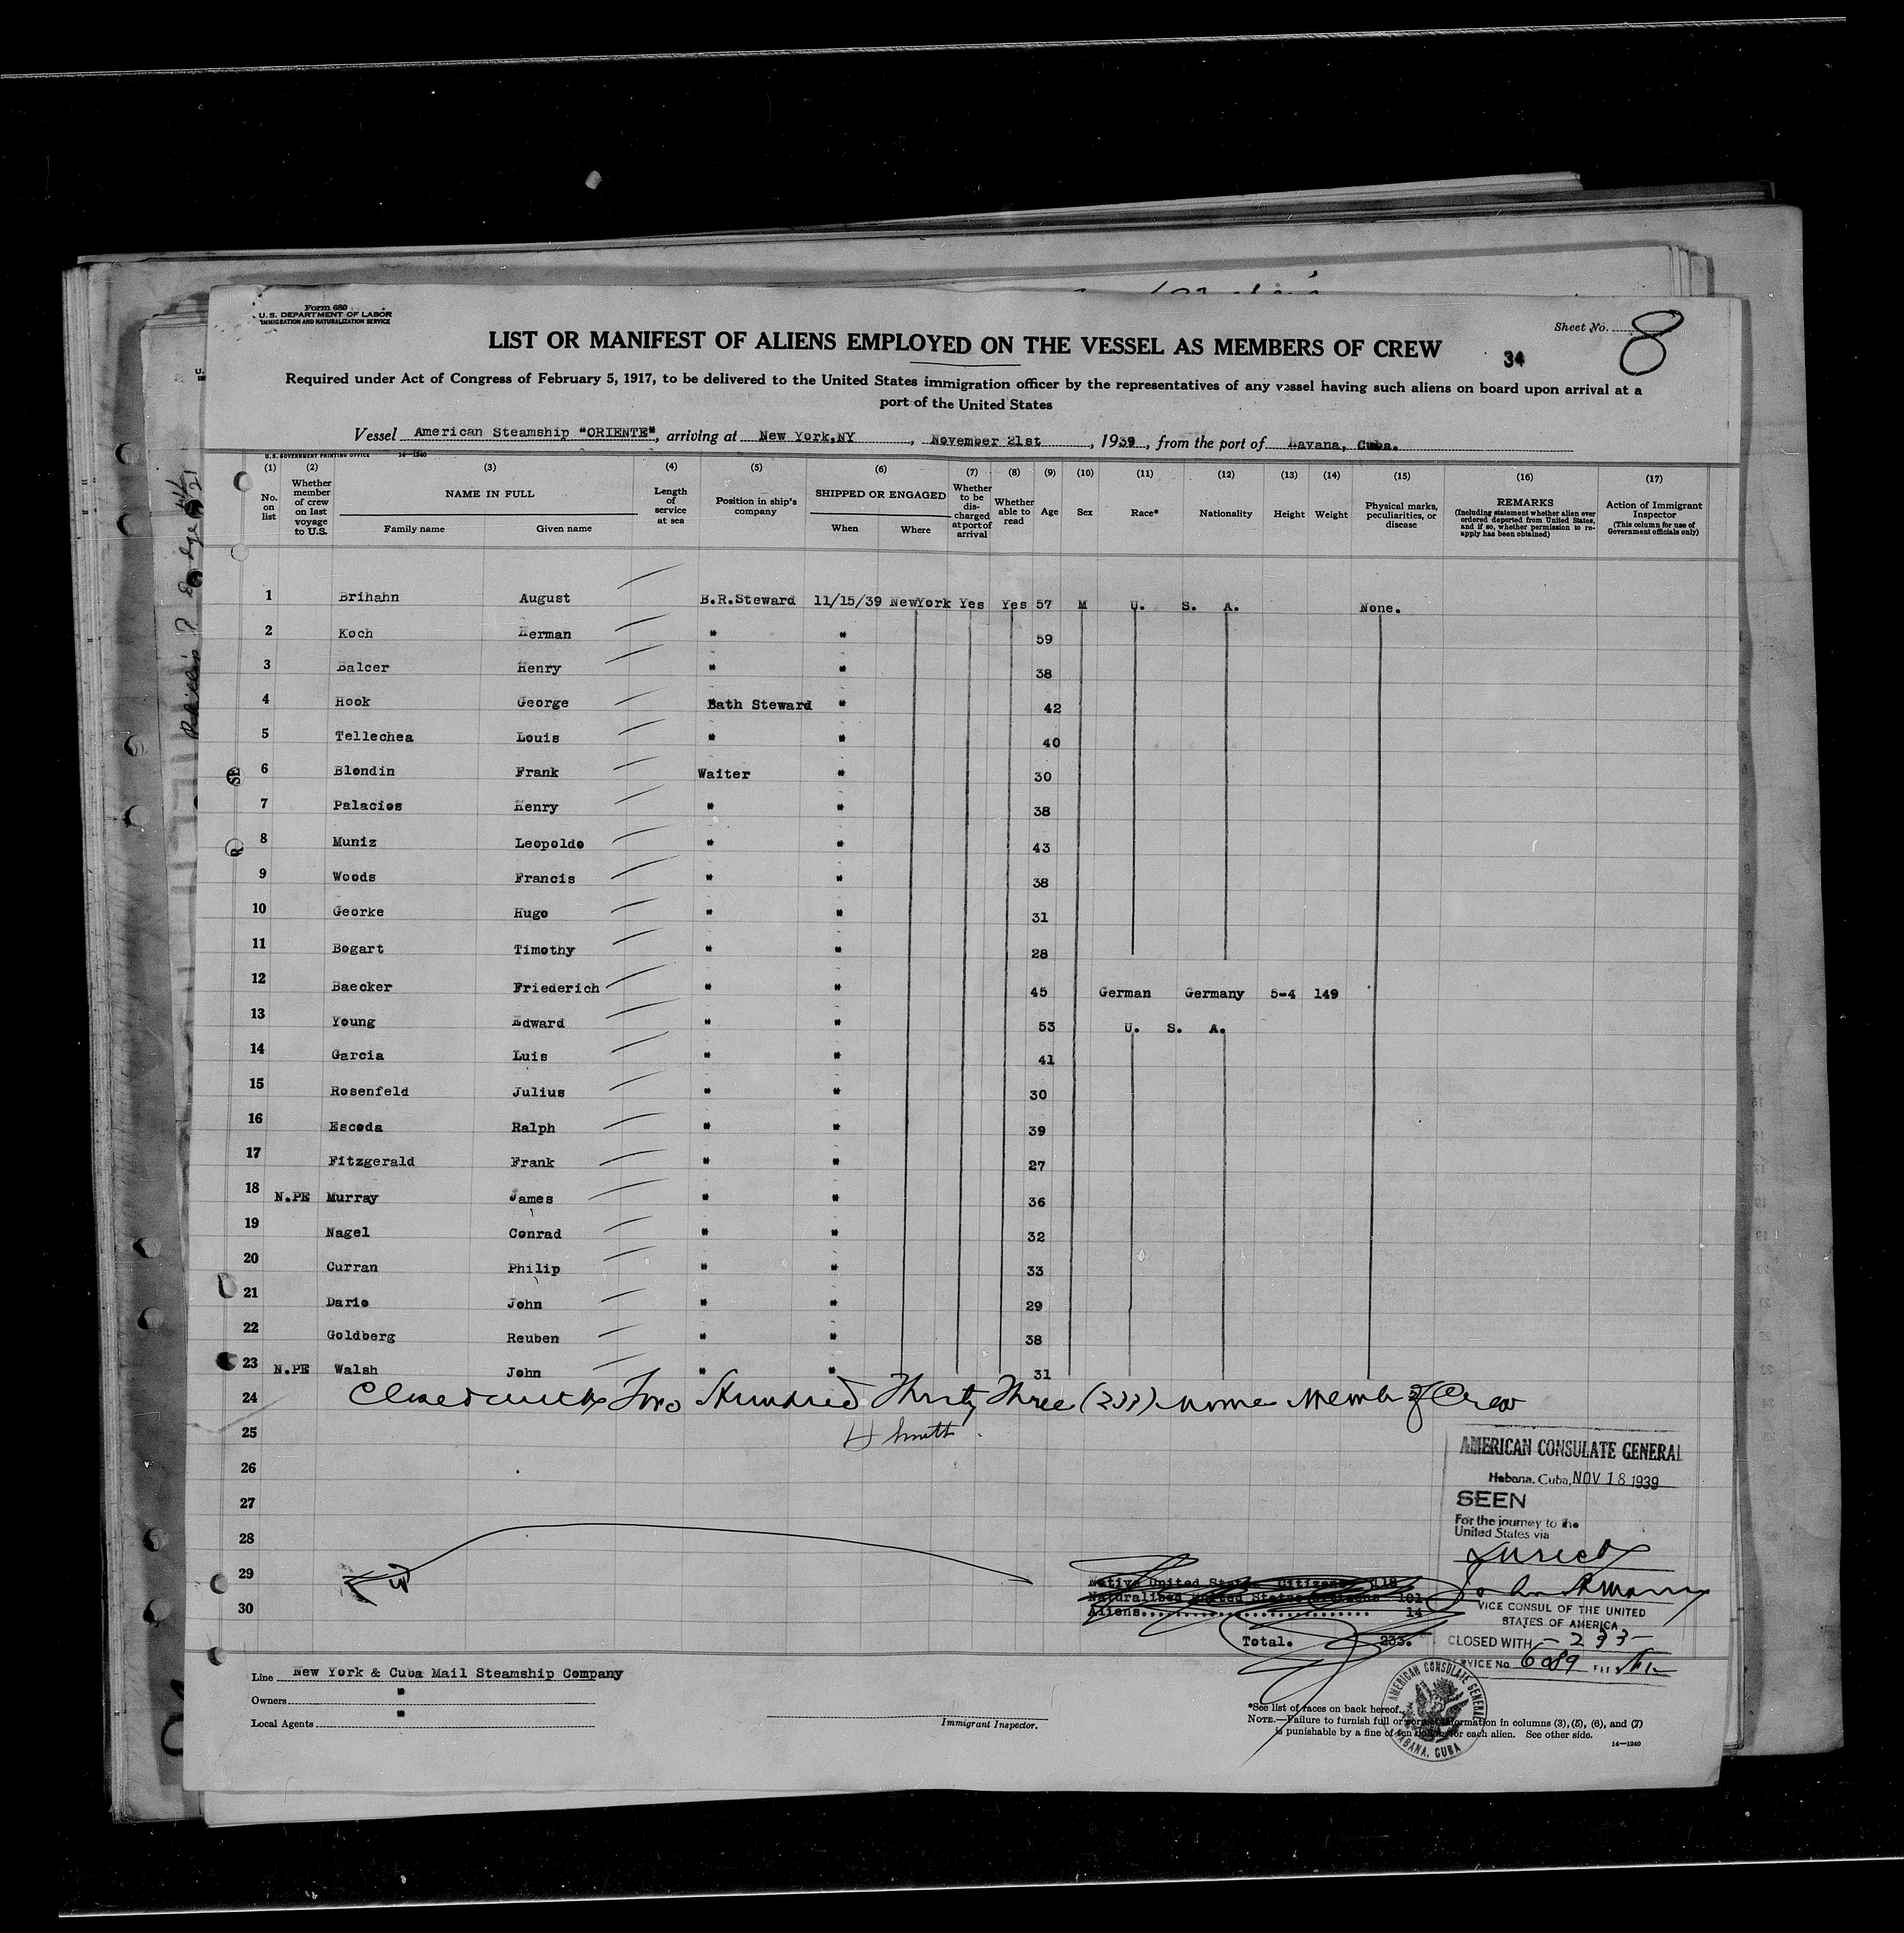 Form 680
U.S. DEPARTMENT OF LABOR
IMMIGRATION AND NATURALIZATION SERVICE
Sheet No. 8
LIST OR MANIFEST OF ALIENS EMPLOYED ON THE VESSEL AS MEMBERS OF CREW
34
Required under Act of Congress of February 5, 1917, to be delivered to the United States immigration officer by the representatives of any vessel having such aliens on board upon arrival at a
port of the United States
Vessel American Steamship "ORIENTE", arriving at New York, NY, November 21st, 1939, from the port of Havana, Cuba.
U.S. GOVERNMENT PRINTING OFFICE 14—1240
(1) (2) (3) (4) (5) (6) (7) (8) (9) (10) (11) (12) (13) (14) (15) (16) (17)
No. on list
Whether member of crew on last voyage to U.S.
NAME IN FULL
Family name
Given name
Length of service at sea
Position in ship's company
SHIPPED OR ENGAGED
When
Where
Whether to be discharged at port of arrival
Whether able to read
Age
Sex
Race*
Nationality
Height
Weight
Physical marks, peculiarities, or disease
REMARKS
(Including statement whether alien ever ordered deported from United States, and if so, whether permission to re-apply has been obtained)
Action of Immigrant Inspector
(This column for use of Government officials only)
1 Brihahn August B.R.Steward 11/15/39 NewYork Yes Yes 57 M U. S. A. None.
2 Koch Herman " " 59
3 Balcer Henry " " 38
4 Hook George Bath Steward " 42
5 Tellechea Louis " " 40
6 Blondin Frank Waiter " 30
7 Palacios Henry " " 38
8 Muniz Leopoldo " " 43
9 Woods Francis " " 38
10 Georke Hugo " " 31
11 Bogart Timothy " " 28
12 Baecker Friederich " " 45 German Germany 5-4 149
13 Young Edward " " 53 U. S. A.
14 Garcia Luis " " 41
15 Rosenfeld Julius " " 30
16 Escoda Ralph " " 39
17 Fitzgerald Frank " " 27
18 N.PE Murray James " " 36
19 Nagel Conrad " " 32
20 Curran Philip " " 33
21 Dario John " " 29
22 Goldberg Reuben " " 38
23 N.PE Walsh John " " 31
24 Closed with Two Hundred Thirty Three (233) Crew
25 H Smith
26
27
28
29
30
AMERICAN CONSULATE GENERAL
Habana, Cuba, NOV 18 1939
SEEN
For the journey to the
United States via
VICE CONSUL OF THE UNITED
STATES OF AMERICA
CLOSED WITH -233-
SERVICE No. 6089
Native United States Citizens 118
Naturalized United States Citizens 101
Aliens 14
Total. 233.
Line New York & Cuba Mail Steamship Company
Owners "
Local Agents "
Immigrant Inspector.
AMERICAN CONSULATE GENERAL
HABANA, CUBA
*See list of races on back hereof.
NOTE.—Failure to furnish full or correct information in columns (3), (5), (6), and (7)
is punishable by a fine of ten dollars for each alien. See other side.
14—1240